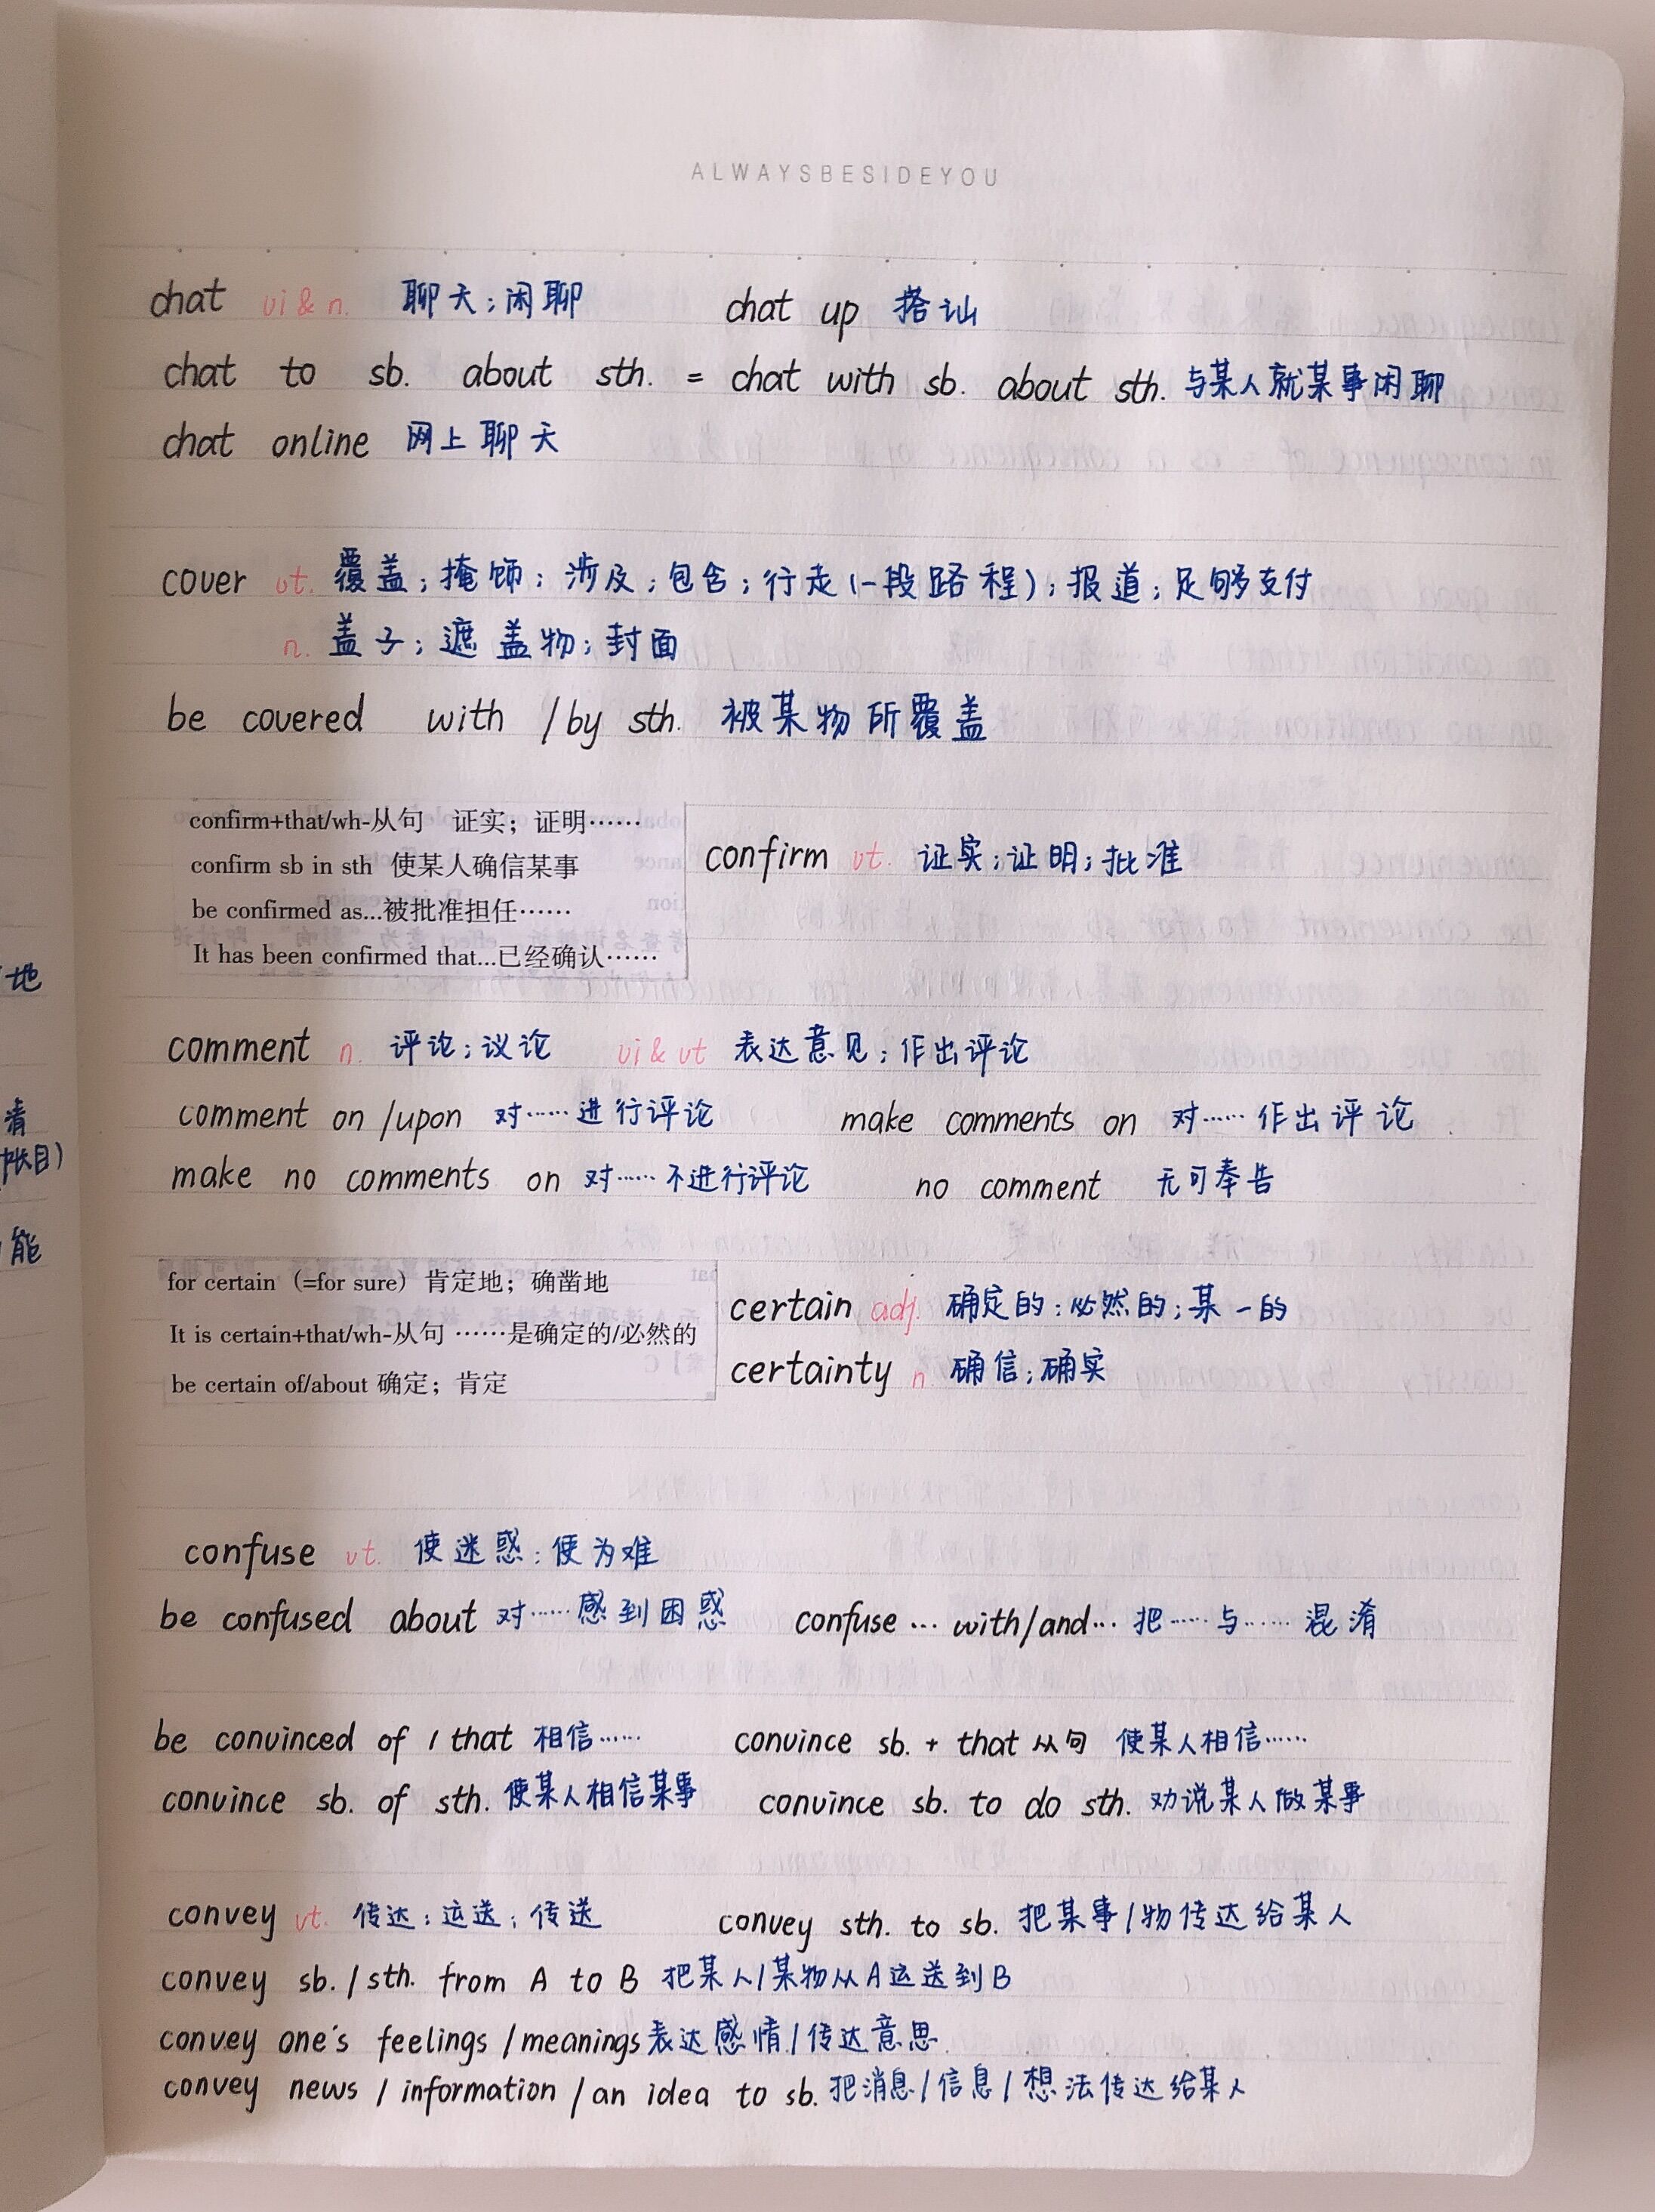 ALWAYSBESIDEYOU
chat vi & n. 聊天;闲聊 chat up 搭讪
chat to sb. about sth. = chat with sb. about sth. 与某人就某事闲聊
chat online 网上聊天
cover vt. 覆盖;掩饰;涉及;包含;行走(一段路程);报道;足够支付
n. 盖子;遮盖物;封面
be covered with / by sth. 被某物所覆盖
confirm+that/wh-从句 证实;证明……
confirm sb in sth 使某人确信某事
be confirmed as...被批准担任……
It has been confirmed that...已经确认……
confirm vt. 证实;证明;批准
comment n. 评论;议论 vi & vt 表达意见;作出评论
comment on / upon 对……进行评论 make comments on 对……作出评论
make no comments on 对……不进行评论 no comment 无可奉告
for certain (=for sure) 肯定地;确凿地
It is certain+that/wh-从句 ……是确定的/必然的
be certain of/about 确定;肯定
certain adj. 确定的;必然的;某一的
certainty n. 确信;确实
confuse vt. 使迷惑;使为难
be confused about 对……感到困惑 confuse … with/and… 把……与……混淆
be convinced of / that 相信…… convince sb. + that 从句 使某人相信……
convince sb. of sth. 使某人相信某事 convince sb. to do sth. 劝说某人做某事
convey vt. 传达;运送;传送 convey sth. to sb. 把某事/物传达给某人
convey sb. / sth. from A to B 把某人/某物从A运送到B
convey one's feelings / meanings 表达感情/传达意思
convey news / information / an idea to sb. 把消息/信息/想法传达给某人
地
清
帐目)
能